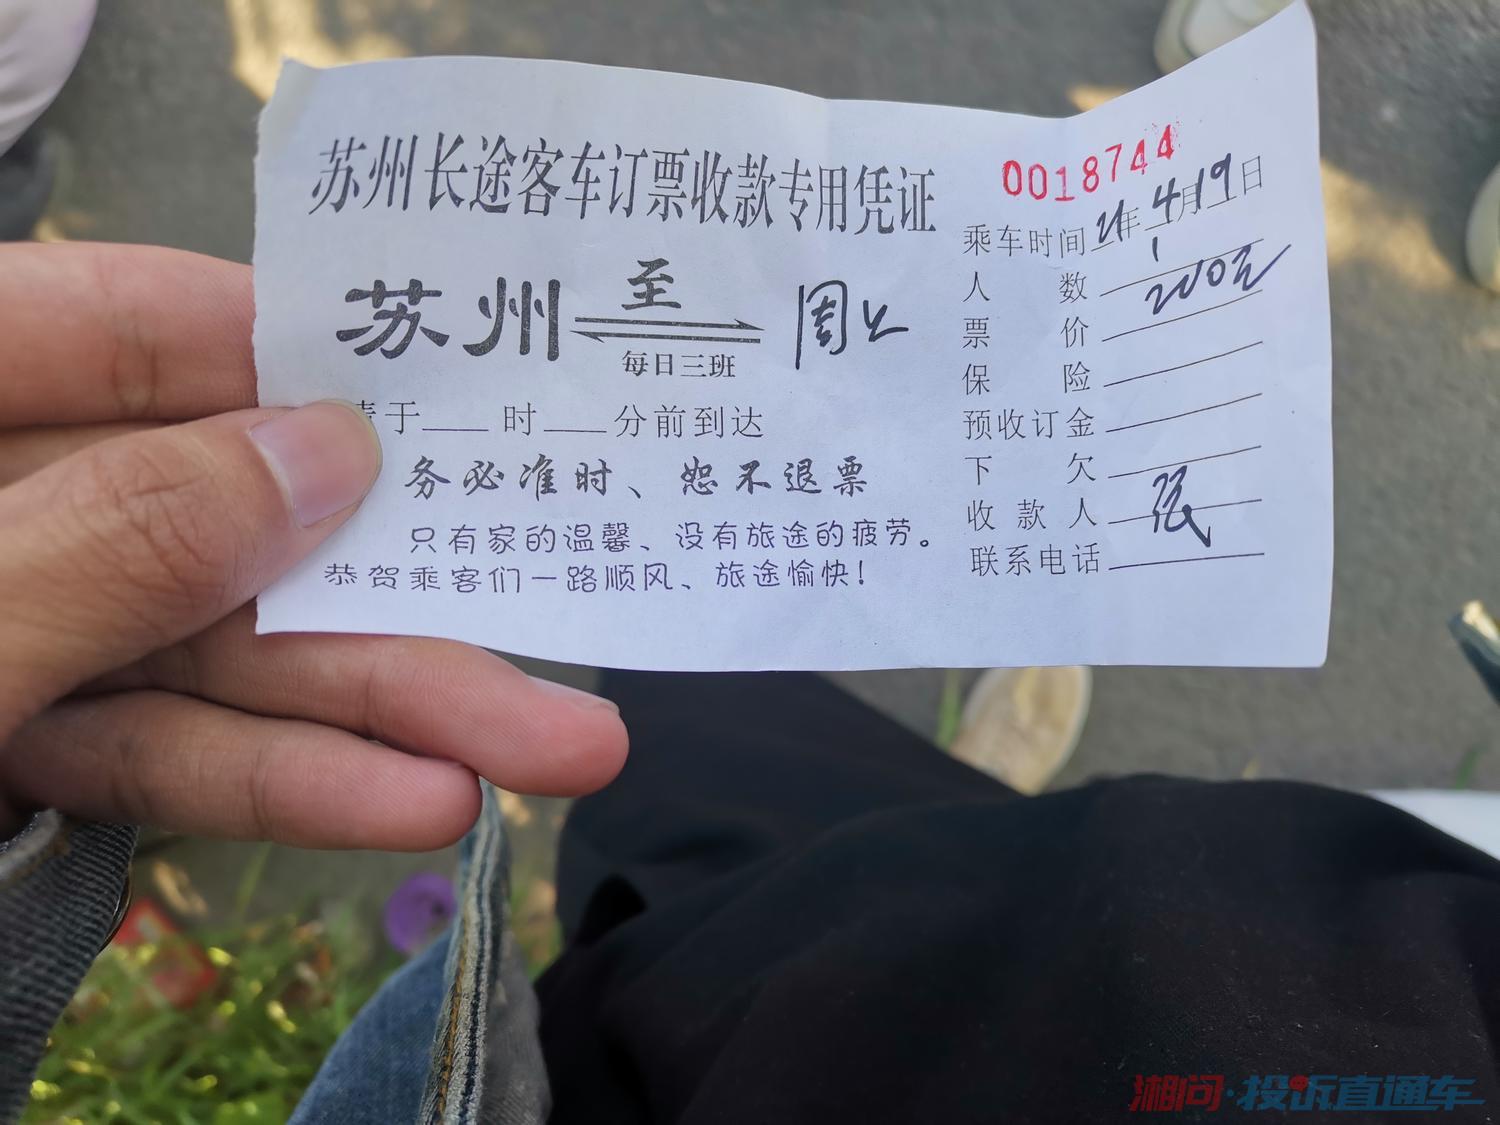 苏州长途客车订票收款专用凭证
0018744
苏州 至 周
每日三班
请于 时 分前到达
务必准时、恕不退票
只有家的温馨、没有旅途的疲劳。
恭贺乘客们一路顺风、旅途愉快！
乘车时间 21年 4月19日
人数 1
票价 200元
保险
预收订金
下欠
收款人 张
联系电话
湘问·投诉直通车